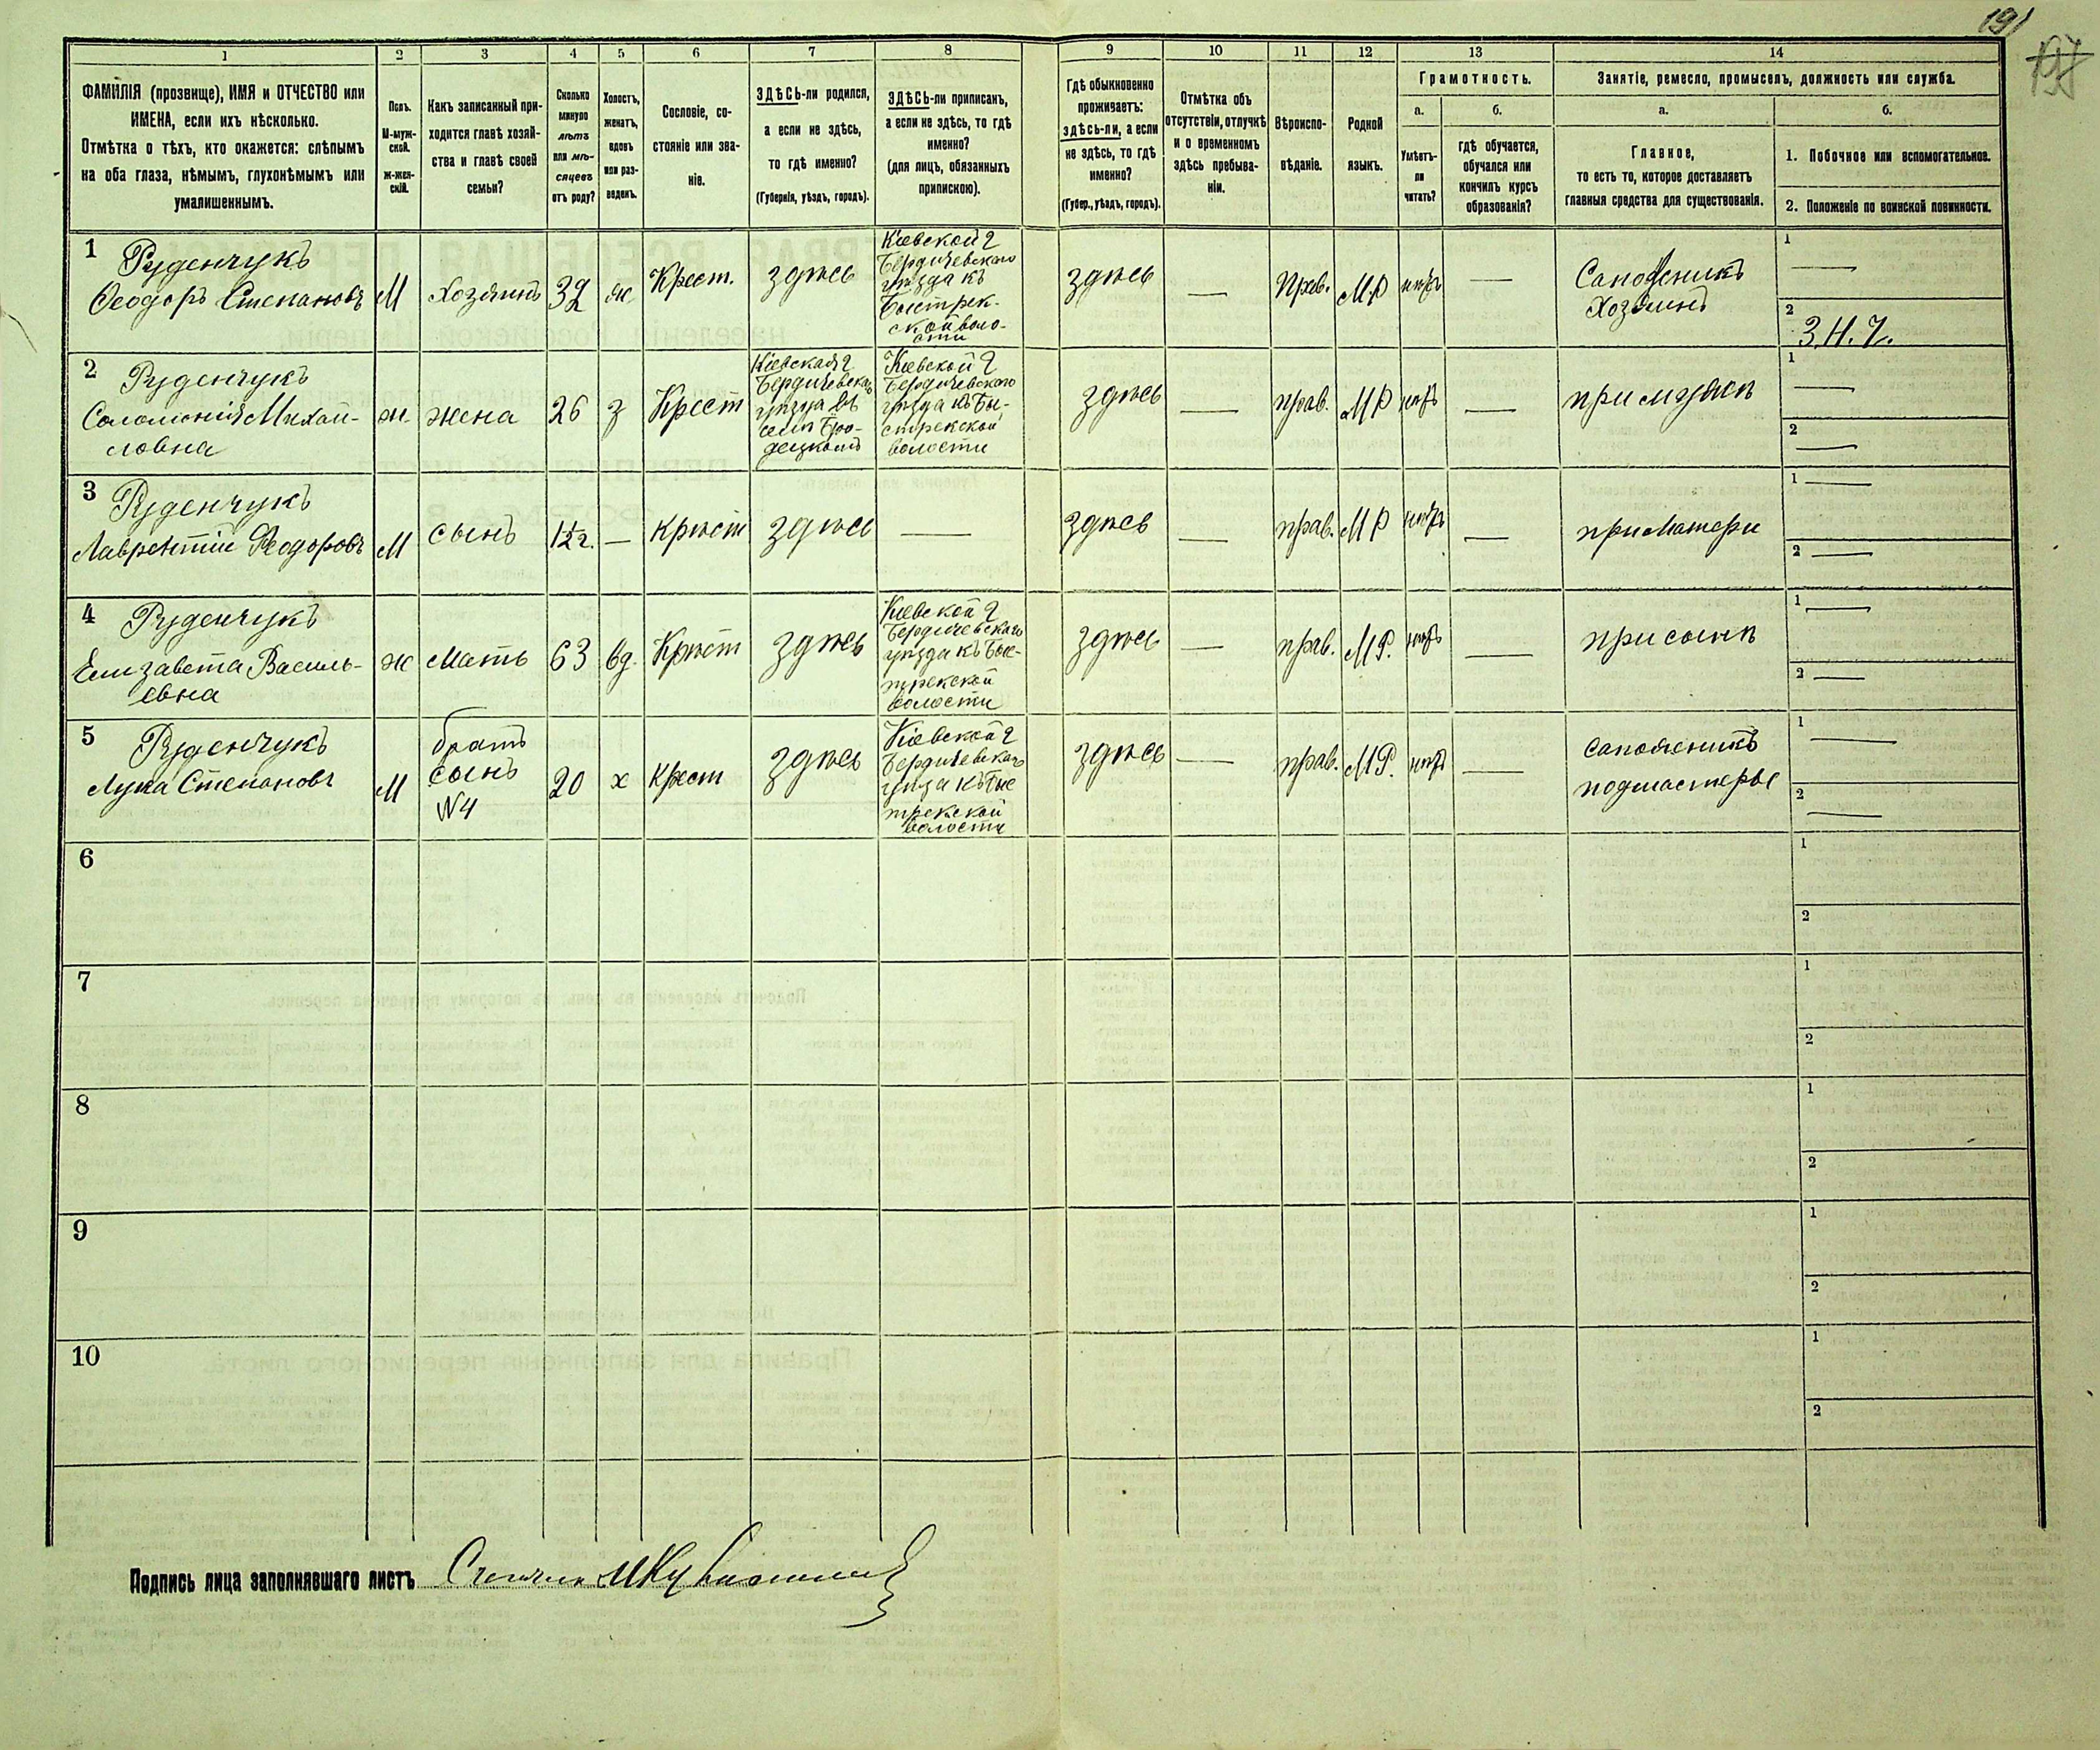 191
197
1
2
3
4
5
6
7
8
9
10
11
12
13
14
ФАМИЛІЯ (прозвище), ИМЯ и ОТЧЕСТВО или
ИМЕНА, если ихъ нѣсколько.
Отмѣтка о тѣхъ, кто окажется: слѣпымъ
на оба глаза, нѣмымъ, глухонѣмымъ или
умалишеннымъ.
Полъ.
М-муж-
ской.
Ж-жен-
скій.
Какъ записанный при-
ходится главѣ хозяй-
ства и главѣ своей
семьи?
Сколько
минуло
лѣтъ
или мѣ-
сяцевъ
отъ роду?
Холостъ,
женатъ,
вдовъ
или раз-
веденъ.
Сословіе, со-
стояніе или зва-
ніе.
ЗДѢСЬ-ли родился,
а если не здѣсь,
то гдѣ именно?
(Губернія, уѣздъ, городъ).
ЗДѢСЬ-ли приписанъ,
а если не здѣсь, то гдѣ
именно?
(для лицъ, обязанныхъ
припискою).
Гдѣ обыкновенно
проживаетъ:
здѣсь-ли, а если
не здѣсь, то гдѣ
именно?
(Губер., уѣздъ, городъ).
Отмѣтка объ
отсутствіи, отлучкѣ
и о временномъ
здѣсь пребыва-
ніи.
Вѣроиспо-
вѣданіе.
Родной
языкъ.
Грамотность.
а.
б.
Умѣетъ-
ли
читать?
гдѣ обучается,
обучался или
кончилъ курсъ
образованія?
Занятіе, ремесло, промыселъ, должность или служба.
а.
б.
Главное,
то есть то, которое доставляетъ
главныя средства для существованія.
1. Побочное или вспомогательное.
2. Положеніе по воинской повинности.
1 Руденчукъ
Ѳеодоръ Степановъ
М
Хозяинъ
32
ж
Крест.
здѣсь
Кіевской г
Бердичевского
уѣзда къ
Быстрек-
ской воло-
сти
здѣсь
—
Прав.
М.Р
нѣтъ
—
Сапожникъ
Хозяинъ
1 —
2 З.Н.Ч.
2 Руденчукъ
Соломонія Михай-
ловна
ж.
жена
26
з
Крест
Кіевская г
Бердичевскаго
уѣзда въ
селѣ Бро-
децкомъ
Кіевской г
Бердичевского
уѣзда къ Бы-
стрекской
волости
здѣсь
—
прав.
МР
нѣтъ
—
при мужѣ
1 —
2 —
3 Руденчукъ
Лаврентій Ѳеодоровъ
М
сынъ
1½ г.
—
крест
здѣсь
—
здѣсь
—
прав.
МР
нѣтъ
—
при Матери
1 —
2 —
4 Руденчукъ
Елизавета Василь-
евна
ж
Мать
63
вд.
Крест
здѣсь
Кіевской г
Бердичевскаго
уѣзда къ Быс-
трекской
волости
здѣсь
—
прав.
М.Р.
нѣтъ
—
при сынѣ
1 —
2 —
5 Руденчукъ
Лука Степановъ
М
братъ
сынъ
№4
20
х
Крест
здѣсь
Кіевской г
Бердичевскаго
уѣзда къ Быс
трекской
волости
здѣсь
—
прав.
МР.
нѣтъ
—
сапожникъ
подмастерье
1 —
2 —
6
1
2
7
1
2
8
1
2
9
1
2
10
1
2
Подпись лица заполнявшаго листъ